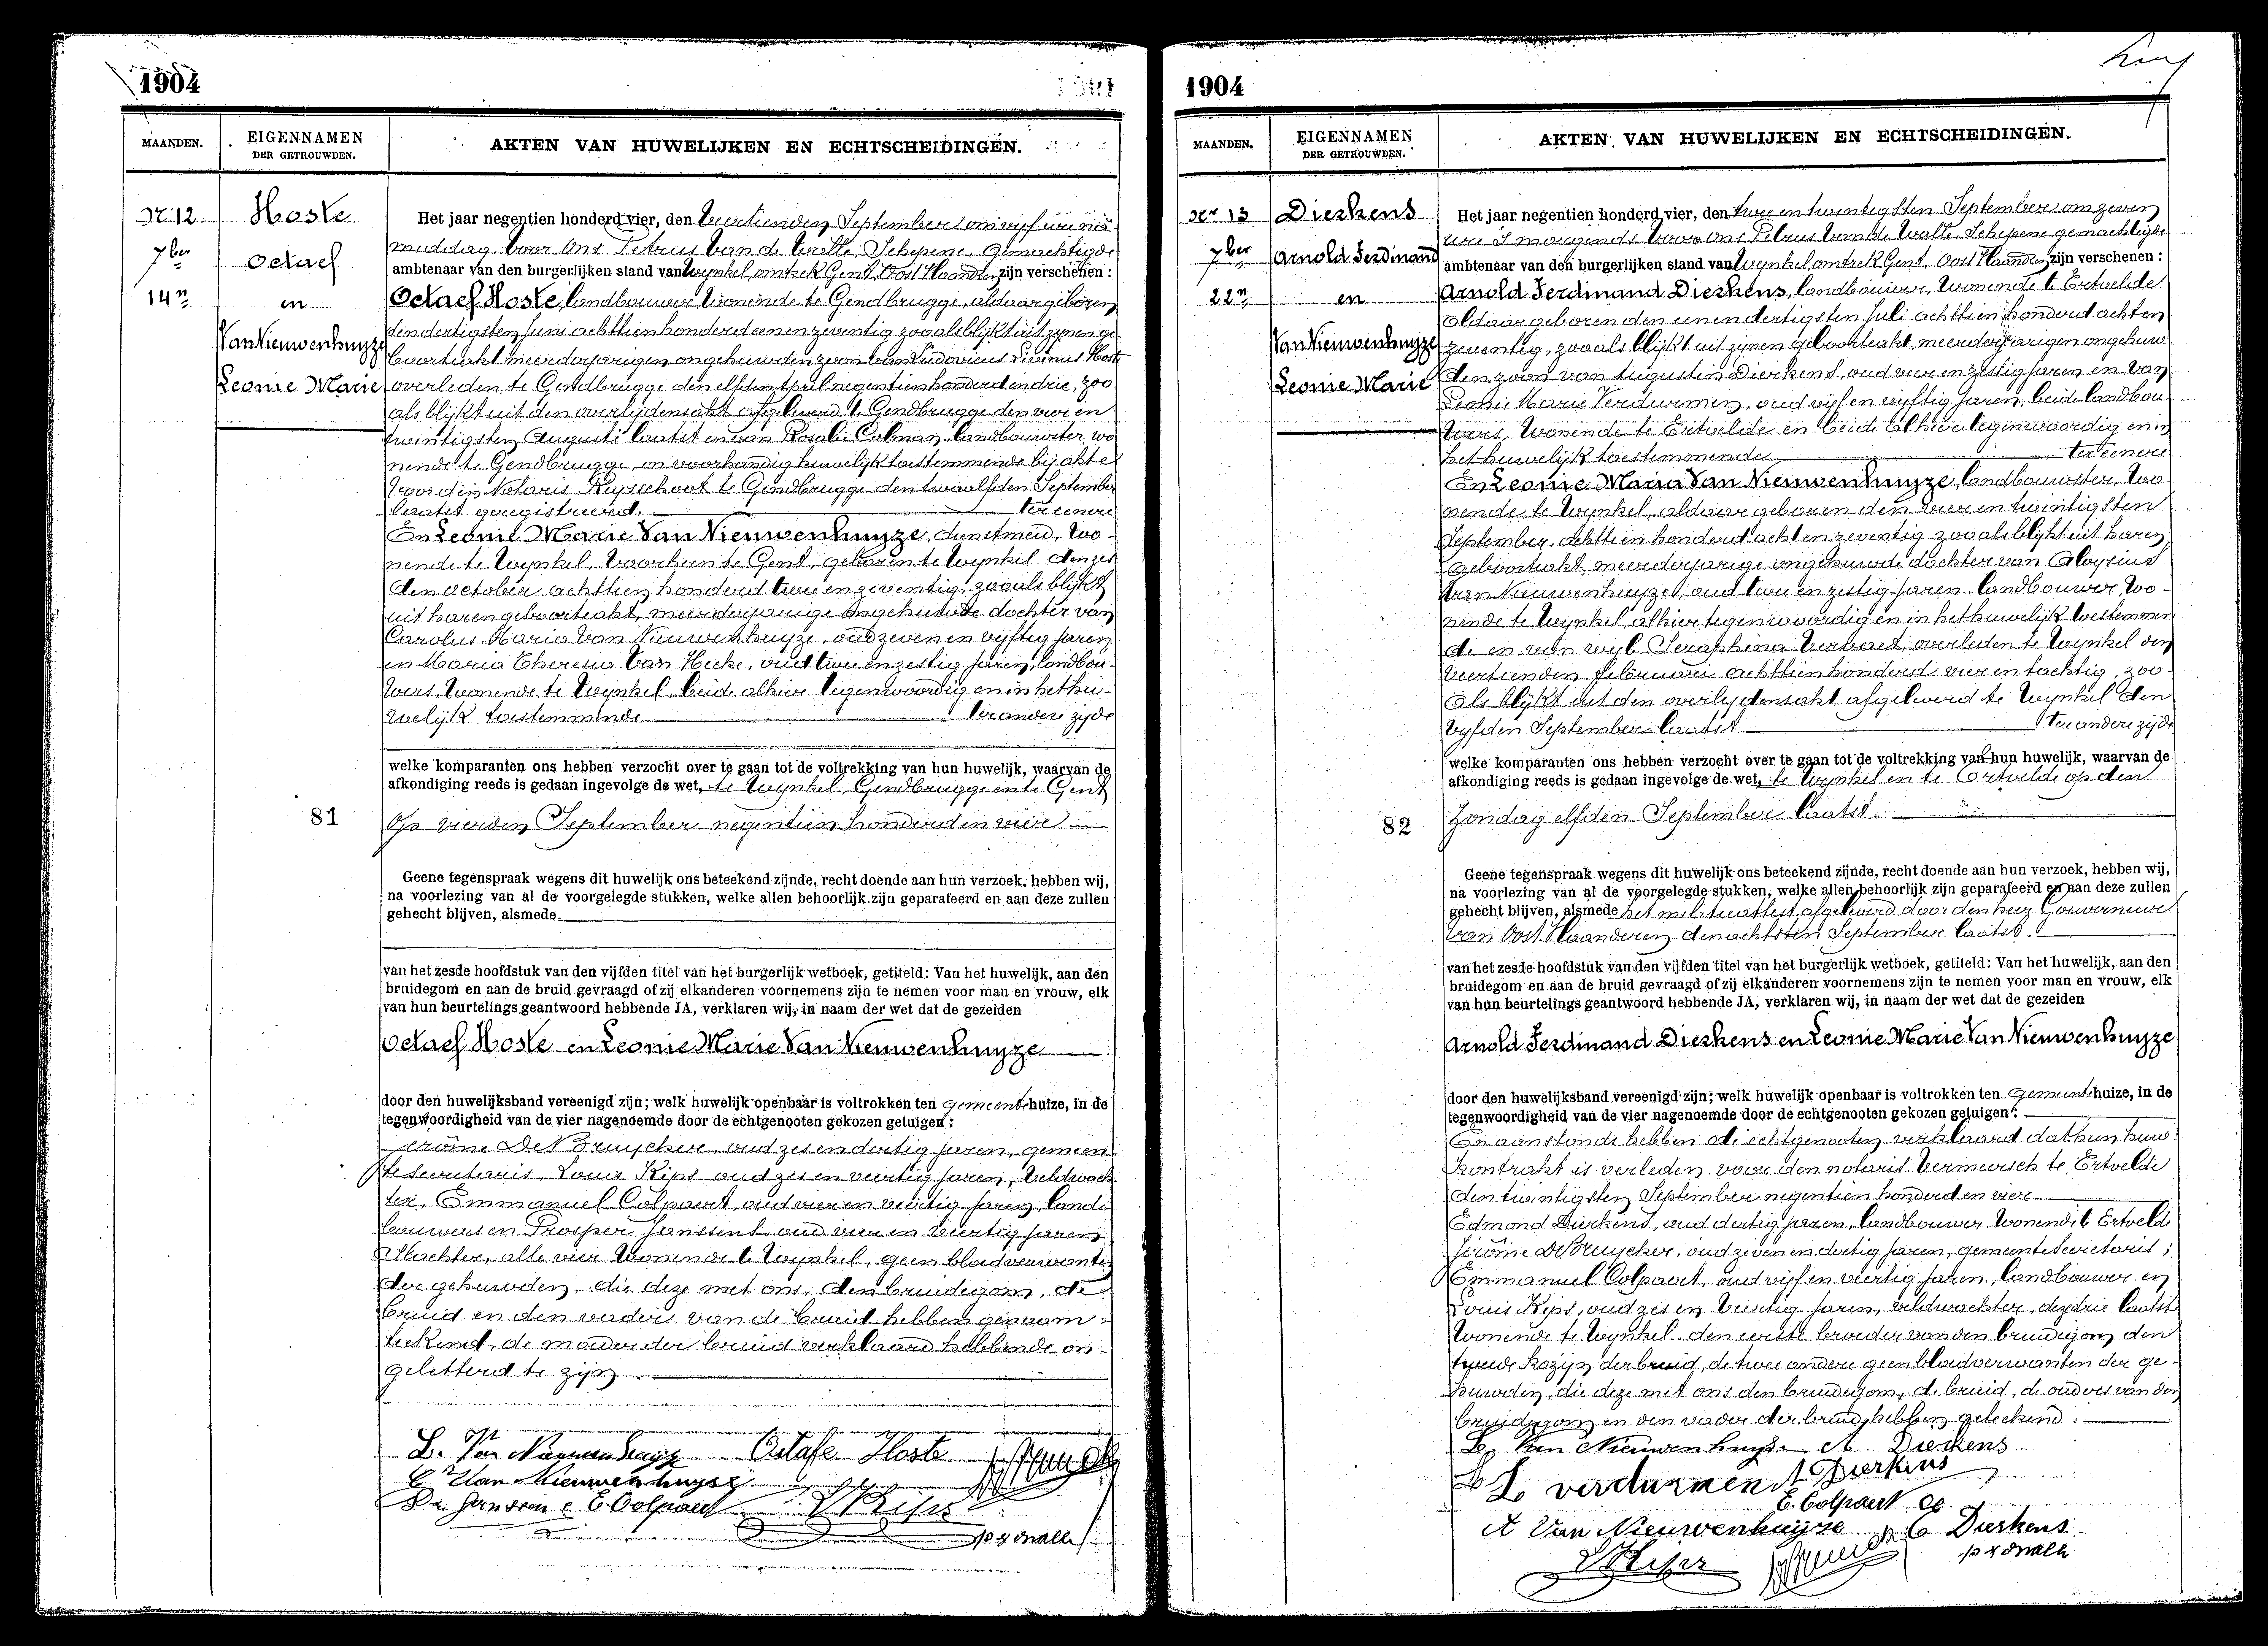 1904
MAANDEN.
EIGENNAMEN
DER GETROUWDEN.
AKTEN VAN HUWELIJKEN EN ECHTSCHEIDINGEN.
Nr 12
7ber
14n
Hoste
Octaef
en
Van Nieuwenhuyze
Leonie Marie
Het jaar negentien honderd vier, den veertienden September om vijf ure na
middag, voor Ons Petrus Van de Walle, Schepene, gemachtigde
ambtenaar van den burgerlijken stand van Wynkel, omtrek Gent, Oost Vlaanderen, zijn verschenen :
Octaef Hoste, landbouwer, wonende te Gendbrugge, aldaar geboren
den dertigsten Juni achttien honderd eenen zeventig zooals blijkt uit zynen ge
boorteakt, meerderjarigen ongehuwden zoon van Ludovicus Livinus Hoste
overleden te Gendbrugge den elfden April negentien honderd en drie, zoo
als blijkt uit den overlijdensakt afgeleverd te Gendbrugge den vier en
twintigsten Augusti laatst en van Rosalie Colman, landbouwster, wo
nende te Gendbrugge, in voorhandig huwelijk toestemmende bij akte
voor den Notaris Ruysschoot te Gendbrugge den twaalfden September
laatst geregistreerd. ter eenere
En Leonie Marie Van Nieuwenhuyze, dienstmeid, wo-
nende te Wynkel, voorheen te Gent, geboren te Wynkel den zes
den October achttien honderd twee en zeventig, zooals blijkt
uit haren geboorteakt, meerderjarige ongehuwde dochter van
Carolus Maria Van Nieuwenhuyze, oud zeven en vyftig jaren
en Maria Theresia Van Hecke, oud twee en zestig jaren, landbou-
wers, wonende te Wynkel, beide alhier tegenwoordig en in het hu-
welijk toestemmende ter andere zyde
welke komparanten ons hebben verzocht over te gaan tot de voltrekking van hun huwelijk, waarvan de
afkondiging reeds is gedaan ingevolge de wet, te Wynkel, Gendbrugge en te Gent
81
Op vierden September negentien honderd en vier
Geene tegenspraak wegens dit huwelijk ons beteekend zijnde, recht doende aan hun verzoek, hebben wij,
na voorlezing van al de voorgelegde stukken, welke allen behoorlijk zijn geparafeerd en aan deze zullen
gehecht blijven, alsmede
van het zesde hoofdstuk van den vijfden titel van het burgerlijk wetboek, getiteld: Van het huwelijk, aan den
bruidegom en aan de bruid gevraagd of zij elkanderen voornemens zijn te nemen voor man en vrouw, elk
van hun beurtelings geantwoord hebbende JA, verklaren wij, in naam der wet dat de gezeiden
Octaef Hoste en Leonie Marie Van Nieuwenhuyze
door den huwelijksband vereenigd zijn; welk huwelijk openbaar is voltrokken ten gemeentehuize, in de
tegenwoordigheid van de vier nagenoemde door de echtgenooten gekozen getuigen :
Jerôme De Bruycker, oud zes en dertig jaren, gemeen
te secretaris, Louis Kips oud zes en veertig jaren, veldwach
ter, Emmanuel Colpaert, oud vier en veertig jaren, land-
bouwer en Prosper Janssens oud vier en veertig jaren
Slachter, alle vier wonende te Wynkel, geen bloedverwanten
der gehuwden, die deze met ons, den bruidegom, de
bruid en den vader van de bruid hebben genaam-
teekend, de moeder der bruid verklaard hebbende on-
geletterd te zijn.
L. Van Nieuwenhuyze Octafe Hoste
C Van Nieuwenhuyse
Pr. Janssens E. Colpaert L Kips
p v d Walle
1904
MAANDEN.
EIGENNAMEN
DER GETROUWDEN.
AKTEN VAN HUWELIJKEN EN ECHTSCHEIDINGEN.
Nr 13
7ber
22n
Dierkens
Arnold Ferdinand
en
Van Nieuwenhuyze
Leonie Marie
Het jaar negentien honderd vier, den twee en twintigsten September om zeven
ure 's morgends voor Ons Petrus Van de Walle, Schepene gemachtigde
ambtenaar van den burgerlijken stand van Wynkel, omtrek Gent, Oost Vlaanderen, zijn verschenen :
Arnold Ferdinand Dierkens, landbouwer, wonende te Ertvelde
aldaar geboren den eenen dertigsten Juli achttien honderd acht en
zeventig, zooals blijkt uit zijnen geboorteakt, meerderjarigen ongehuw
den zoon van Augustin Dierkens, oud vier en zestig jaren en van
Leonie Marie Verdurmen, oud vijf en vyftig jaren, beide landbou
wers, wonende te Ertvelde en beide alhier tegenwoordig en in
het huwelijk toestemmende. ter eenere
En Leonie Maria Van Nieuwenhuyze, landbouwster, wo
nende te Wynkel, aldaar geboren den vier en twintigsten
September, achttien honderd acht en zeventig zooals blijkt uit haren
geboorteakt, meerderjarige ongehuwde dochter van Aloysius
Van Nieuwenhuyze, oud twee en zestig jaren landbouwer, wo-
nende te Wynkel, alhier tegenwoordig en in het huwelijk toestemmen
de en van wyl. Seraphina Verbaet, overleden te Wynkel den
veertienden februari achttien honderd vier en tachtig, zoo-
als blijkt uit den overlydensakt afgeleverd te Wynkel den
vyfden September laatst ter andere zijde
welke komparanten ons hebben verzocht over te gaan tot de voltrekking van hun huwelijk, waarvan de
afkondiging reeds is gedaan ingevolge de wet, te Wynkel en te Ertvelde op den
82
Zondag elfden September laatst.
Geene tegenspraak wegens dit huwelijk ons beteekend zijnde, recht doende aan hun verzoek, hebben wij,
na voorlezing van al de voorgelegde stukken, welke allen behoorlijk zijn geparafeerd en aan deze zullen
gehecht blijven, alsmede het militieattest afgeleverd door den heer Gouverneur
van Oost Vlaanderen den achtsten September laatst.
van het zesde hoofdstuk van den vijfden titel van het burgerlijk wetboek, getiteld: Van het huwelijk, aan den
bruidegom en aan de bruid gevraagd of zij elkanderen voornemens zijn te nemen voor man en vrouw, elk
van hun beurtelings geantwoord hebbende JA, verklaren wij, in naam der wet dat de gezeiden
Arnold Ferdinand Dierkens en Leonie Marie Van Nieuwenhuyze
door den huwelijksband vereenigd zijn; welk huwelijk openbaar is voltrokken ten Gemeentehuize, in de
tegenwoordigheid van de vier nagenoemde door de echtgenooten gekozen getuigen :
En aanstonds hebben de echtgenooten verklaard dat hun huw.
kontrakt is verleden voor den notaris Vermeersch te Ertvelde
den twintigsten September negentien honderd en vier.
Edmond Dierkens, oud dertig jaren, landbouwer, wonende te Ertvelde
Jerôme De Bruycker, oud zeven en dertig jaren, gemeentesecretaris ;
Emmanuel Colpaert, oud vijf en veertig jaren, landbouwer en
Louis Kips, oud zes en veertig jaren, veldwachter, deze drie laatste
wonende te Wynkel, den eerste broeder van den bruidegom, den
tweede kozijn der bruid, de twee andere geen bloedverwanten der ge-
huwden, die deze met ons den bruidegom, de bruid, de ouders van den
bruidegom en den vader der bruid hebben geteekend.
L. Van Nieuwenhuyze A Dierkens
L verdurmen A Dierkens
E. Colpaert
A Van Nieuwenhuyse E Dierkens
L Kips p v d Walle